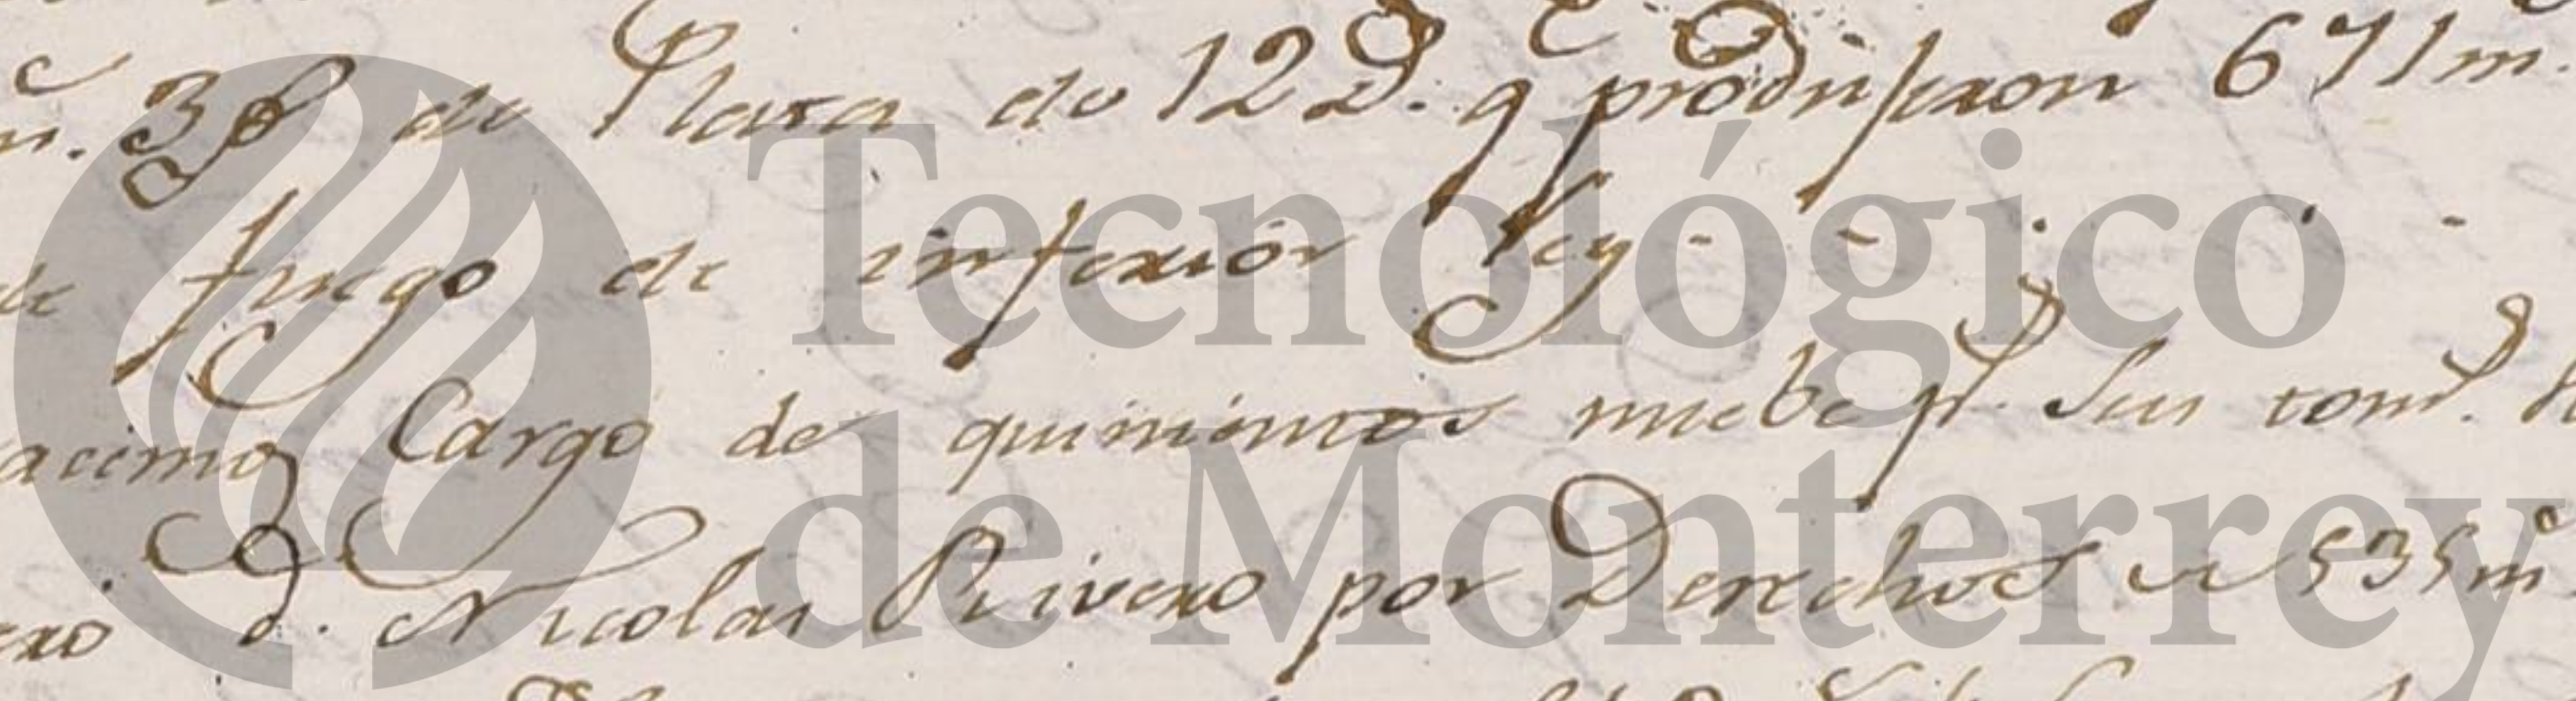 m. 3 de Plata de 12 D. q produjeron 671 m.
de fuego de inferior ley - -
acemos Cargo de quinientos nuebe p. sus tom.
d. Nicolas Rivero por Derechos de 535 m
Tecnológico
de Monterrey